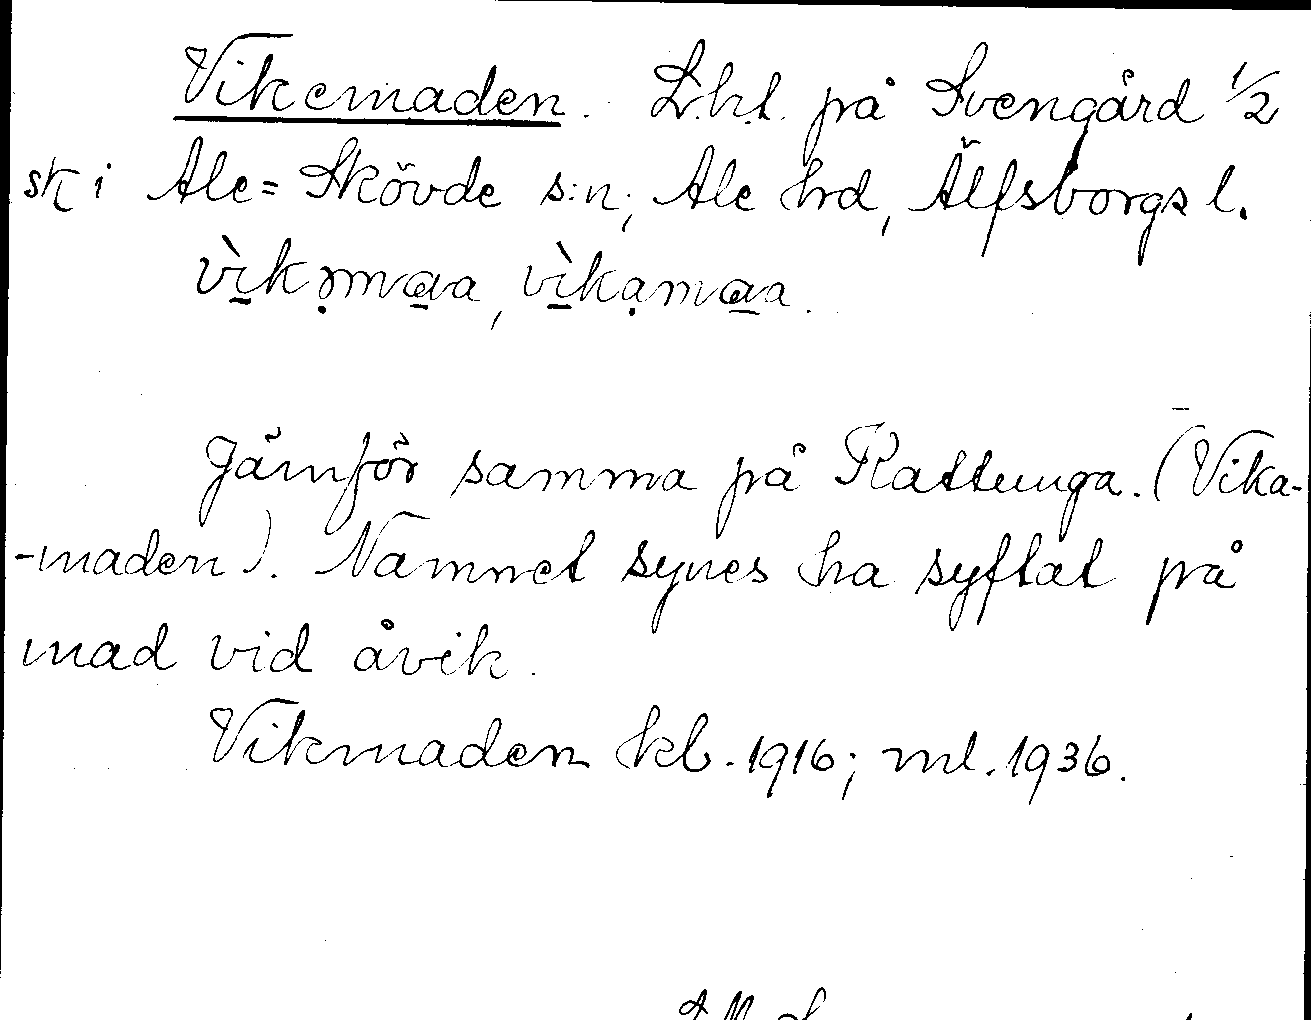 Vikemaden. L.h.t. på Svengård 1/2
sk i Ale=Skövde s:n; Ale hrd, Älfsborgs l.
vìkəmaa, vìkamaa.
Jämför samma på Kattunga. (Vika-
-maden). Namnet synes ha syftat på
mad vid åvik.
Vikmaden kb. 1916; ml. 1936.